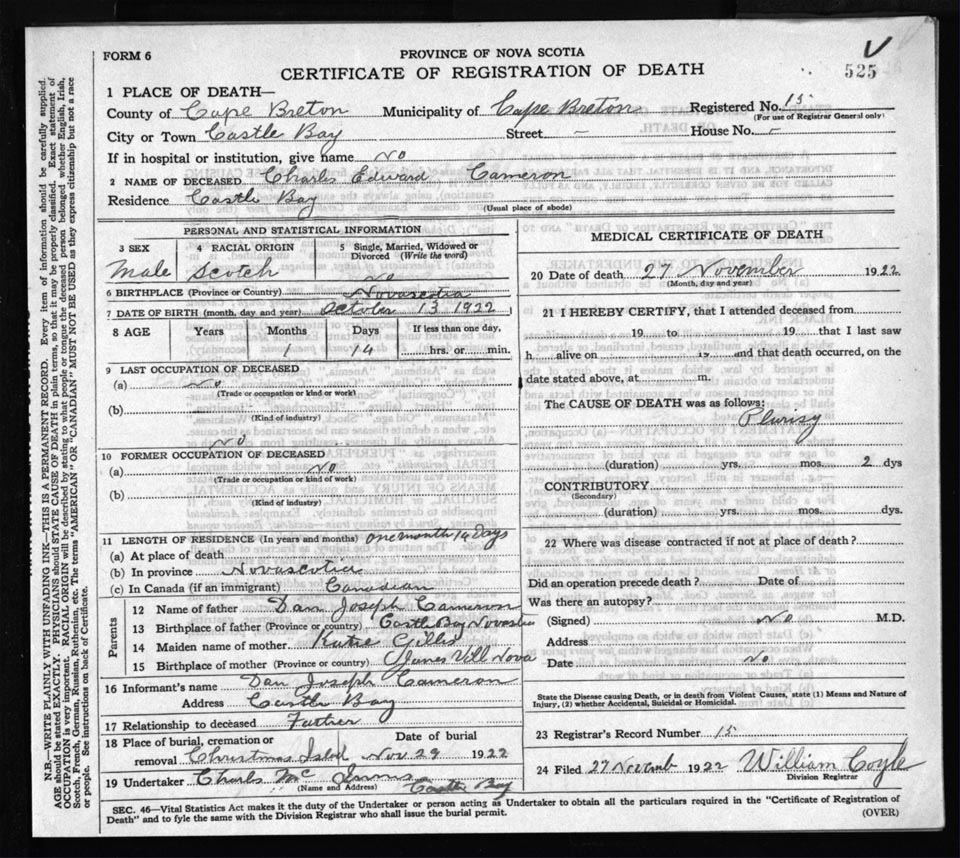 FORM 6
PROVINCE OF NOVA SCOTIA
CERTIFICATE OF REGISTRATION OF DEATH
V
525
1 PLACE OF DEATH—
County of Cape Breton Municipality of Cape Breton Registered No. 15
(For use of Registrar General only)
City or Town Castle Bay Street – House No. –
If in hospital or institution, give name No
2 NAME OF DECEASED Charles Edward Cameron
Residence Castle Bay
(Usual place of abode)
PERSONAL AND STATISTICAL INFORMATION
3 SEX 4 RACIAL ORIGIN 5 Single, Married, Widowed or Divorced (Write the word)
Male Scotch No
6 BIRTHPLACE (Province or Country) Novascotia
7 DATE OF BIRTH (month, day and year) October 13 1922
8 AGE Years Months Days If less than one day,
1 14 hrs. or min.
9 LAST OCCUPATION OF DECEASED
(a) No
(Trade or occupation or kind of work)
(b)
(Kind of industry)
No
10 FORMER OCCUPATION OF DECEASED
(a) No
(Trade or occupation or kind of work)
(b)
(Kind of industry)
11 LENGTH OF RESIDENCE (In years and months) one month 14 Days
(a) At place of death
(b) In province Novascotia
(c) In Canada (if an immigrant) Canadian
Parents
12 Name of father Dan Joseph Cameron
13 Birthplace of father (Province or country) Castle Bay
14 Maiden name of mother Katie Gillis
15 Birthplace of mother (Province or country) Vill Nova
16 Informant's name Dan Joseph Cameron
Address Castle Bay
17 Relationship to deceased Farther
18 Place of burial, cremation or removal Date of burial
Christmas Isld Nov 29 1922
19 Undertaker Charls Mc
(Name and Address) Castle Bay
MEDICAL CERTIFICATE OF DEATH
20 Date of death 27 November 1922
(Month, day and year)
21 I HEREBY CERTIFY, that I attended deceased from
19 to 19 that I last saw
h alive on 19 and that death occurred, on the
date stated above, at m.
The CAUSE OF DEATH was as follows:
Plurisy
(duration) yrs. mos. 2 dys
CONTRIBUTORY
(Secondary)
(duration) yrs. mos. dys.
22 Where was disease contracted if not at place of death?
Did an operation precede death? Date of
Was there an autopsy?
(Signed) No M.D.
Address
Date No
State the Disease causing Death, or in death from Violent Causes, state (1) Means and Nature of
Injury, (2) whether Accidental, Suicidal or Homicidal.
23 Registrar's Record Number 15
24 Filed 27 Novemb 1922 William Coyle
Division Registrar
SEC. 46—Vital Statistics Act makes it the duty of the Undertaker or person acting as Undertaker to obtain all the particulars required in the "Certificate of Registration of
Death" and to fyle the same with the Division Registrar who shall issue the burial permit.
(OVER)
N.B.—WRITE PLAINLY WITH UNFADING INK—THIS IS A PERMANENT RECORD. Every item of information should be carefully supplied.
AGE should be stated EXACTLY. PHYSICIANS should STATE CAUSE OF DEATH in plain terms, so that it may be properly classified. Exact statement of
OCCUPATION is very important. RACIAL ORIGIN will be described by stating to what people or tongue the deceased person belonged whether English, Irish,
Scotch, French, German, Russian, Ruthenian, etc. The terms "AMERICAN" OR "CANADIAN" MUST NOT BE USED as they express citizenship but not a race
or people. See instructions on back of Certificate.